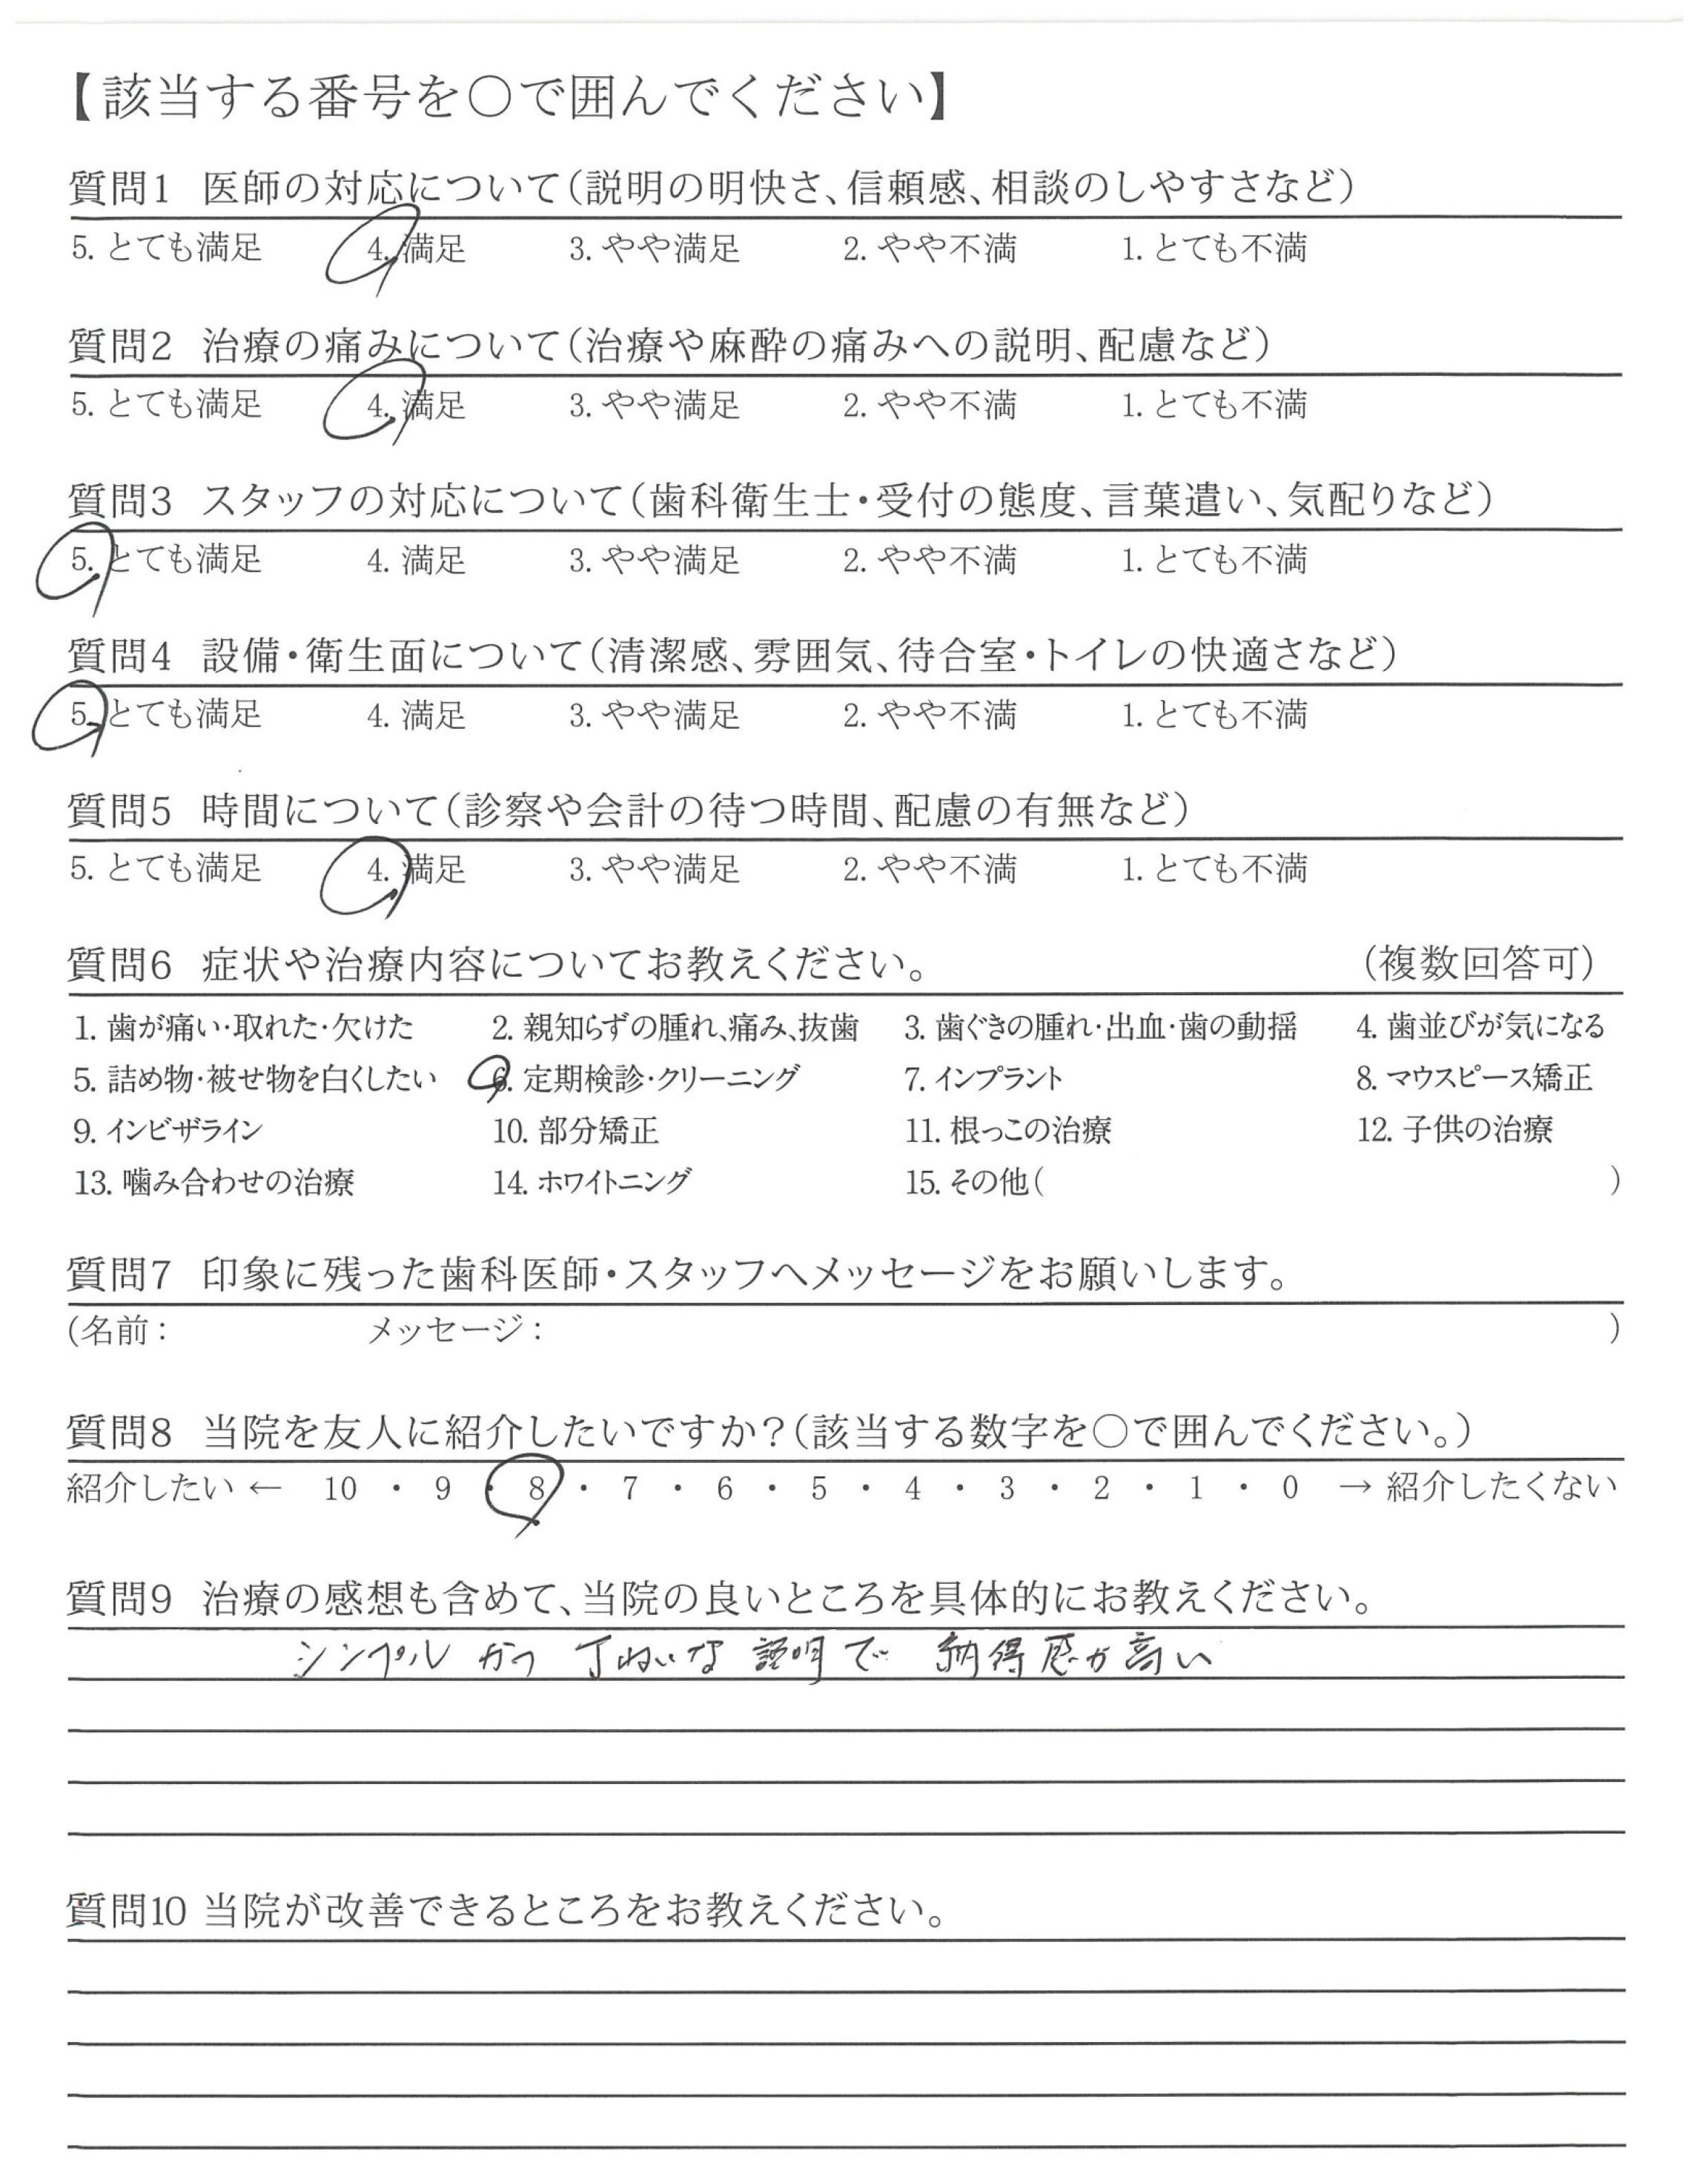 【該当する番号を○で囲んでください】
質問1 医師の対応について(説明の明快さ、信頼感、相談のしやすさなど)
5. とても満足 4. 満足 3. やや満足 2. やや不満 1. とても不満
質問2 治療の痛みについて(治療や麻酔の痛みへの説明、配慮など)
5. とても満足 4. 満足 3. やや満足 2. やや不満 1. とても不満
質問3 スタッフの対応について(歯科衛生士・受付の態度、言葉遣い、気配りなど)
5. とても満足 4. 満足 3. やや満足 2. やや不満 1. とても不満
質問4 設備・衛生面について(清潔感、雰囲気、待合室・トイレの快適さなど)
5. とても満足 4. 満足 3. やや満足 2. やや不満 1. とても不満
質問5 時間について(診察や会計の待つ時間、配慮の有無など)
5. とても満足 4. 満足 3. やや満足 2. やや不満 1. とても不満
質問6 症状や治療内容についてお教えください。 (複数回答可)
1. 歯が痛い・取れた・欠けた 2. 親知らずの腫れ、痛み、抜歯 3. 歯ぐきの腫れ・出血・歯の動揺 4. 歯並びが気になる
5. 詰め物・被せ物を白くしたい 6. 定期検診・クリーニング 7. インプラント 8. マウスピース矯正
9. インビザライン 10. 部分矯正 11. 根っこの治療 12. 子供の治療
13. 噛み合わせの治療 14. ホワイトニング 15. その他( )
質問7 印象に残った歯科医師・スタッフへメッセージをお願いします。
(名前: メッセージ: )
質問8 当院を友人に紹介したいですか?(該当する数字を○で囲んでください。)
紹介したい ← 10 ・ 9 ・ 8 ・ 7 ・ 6 ・ 5 ・ 4 ・ 3 ・ 2 ・ 1 ・ 0 → 紹介したくない
質問9 治療の感想も含めて、当院の良いところを具体的にお教えください。
シンプル かつ 丁ねいな 説明で 納得感が高い
質問10 当院が改善できるところをお教えください。